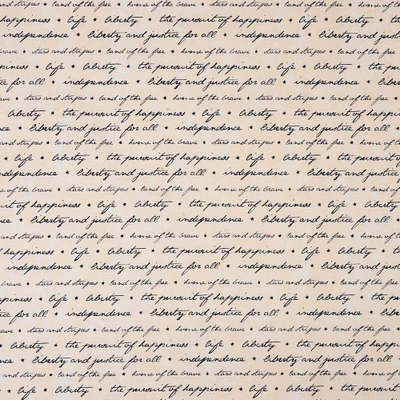 nd stripes • land of the free • home of the brave • stars and stripes • land of the free •
happiness • life • liberty • the pursuit of happiness • life • liberty • th
independence • liberty and justice for all • independence • liberty
stars and stripes • land of the free • home of the brave • stars and stripes
the pursuit of happiness • life • liberty • the pursuit of happiness • life •
ce for all • independence • liberty and justice for all • independence
ave • stars and stripes • land of the free • home of the brave • stars and stripes • land of the free
liberty • the pursuit of happiness • life • liberty • the pursuit of ha
ce • liberty and justice for all • independence • liberty and justice for all
and stripes • land of the free • home of the brave • stars and stripes • land of the free •
ppiness • life • liberty • the pursuit of happiness • life • liberty • the
independence • liberty and justice for all • independence • liberty an
home of the brave • stars and stripes • land of the free • home of the brave • stars and stripes •
suit of happiness • life • liberty • the pursuit of happiness • life •
e • liberty and justice for all • independence • liberty and justice for all •
nd of the free • home of the brave • stars and stripes • land of the free • home of the brave
• life • liberty • the pursuit of happiness • life • liberty • the pursuit
independence • liberty and justice for all • independence • liberty and ju
of the brave • stars and stripes • land of the free • home of the brave • stars and stripes • land
ppiness • life • liberty • the pursuit of happiness • life • liberty • the
• independence • liberty and justice for all • independence • liber
ve • stars and stripes • land of the free • home of the brave • stars and stripes • land of the free
• liberty • the pursuit of happiness • life • liberty • the pursuit of happ
nce • liberty and justice for all • independence • liberty and justice for all
stars and stripes • land of the free • home of the brave • stars and stripes • land of the free •
• life • liberty • the pursuit of happiness • life • liberty • the p